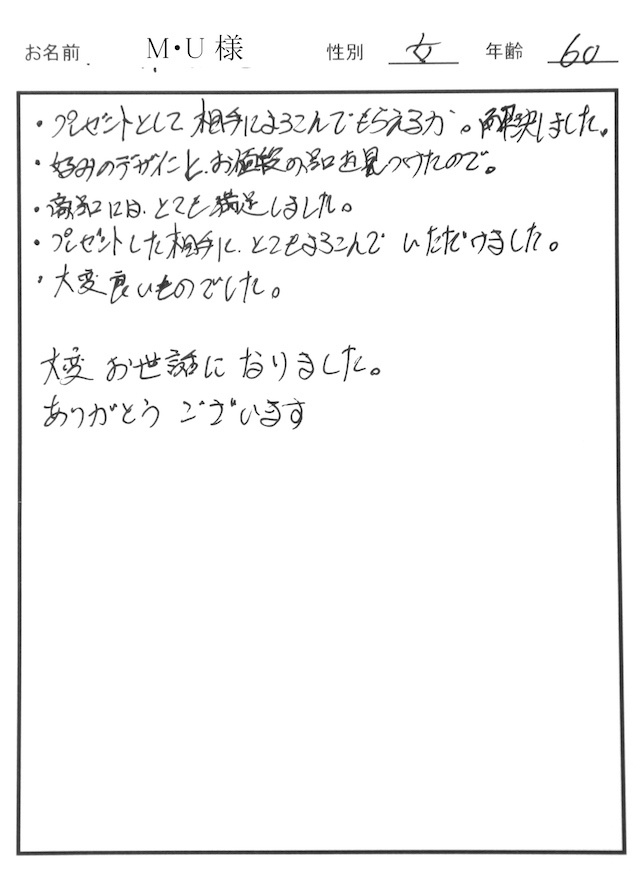 お名前 M・U 様 性別 女 年齢 60
・プレゼントとして相手によろこんでもらえるか。解決しました。
・好みのデザインと、お値段の品を見つけたので。
・商品には、とても満足しました。
・プレゼントした相手に、とてもよろこんで いただけました。
・大変良いものでした。
大変 お世話に なりました。
ありがとう ございます